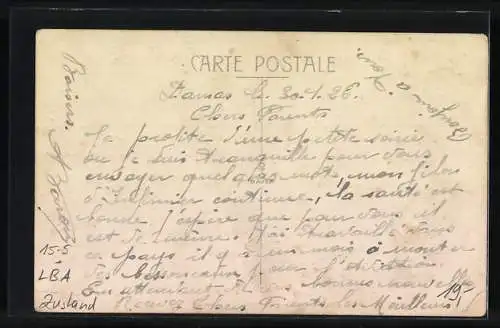 CARTE POSTALE
Damas le 30.1.26
Chers Parents
Je profite d'une petite soirée
ou je suis tranquille pour vous
envoyer quelques mots, mon filon
d'Infirmier continue, la santé est
bonne j'espère que pour vous il
est de même. travaille dans
ce pays il y a mois à monter
des pour l'aviation
En attendant de vos bonnes nouvelles
Recevez Chers Parents les Meilleurs
Baisers.
Bonjour a
15-5
LBA
Zustand
19,-